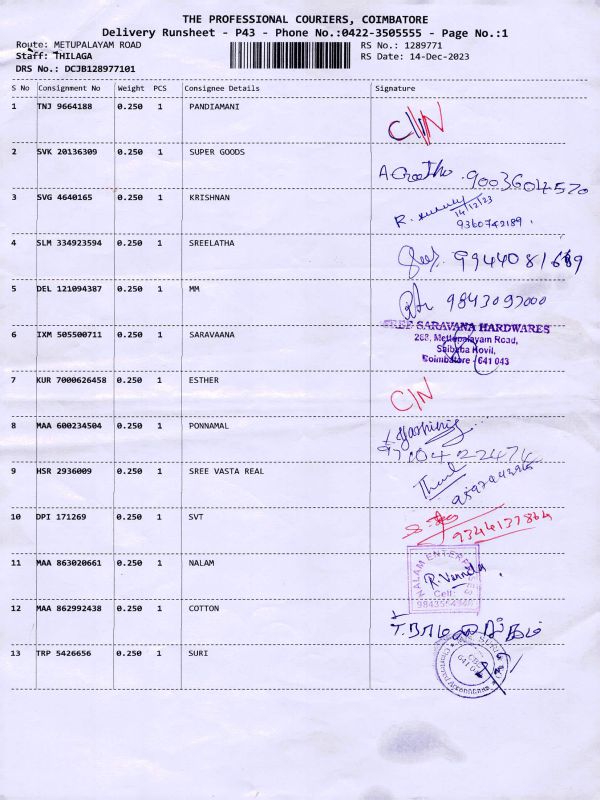 THE PROFESSIONAL COURIERS, COIMBATORE
Delivery Runsheet - P43 - Phone No.:0422-3505555 - Page No.:1
Route: METUPALAYAM ROAD RS No.: 1289771
Staff: THILAGA RS Date: 14-Dec-2023
DRS No.: DCJB128977101
S No Consignment No Weight PCS Consignee Details Signature
1 TNJ 9664188 0.250 1 PANDIAMANI C/N
2 SVK 20136309 0.250 1 SUPER GOODS
3 SVG 4640165 0.250 1 KRISHNAN
14/12/23
9360742189.
4 SLM 334923594 0.250 1 SREELATHA
5 DEL 121094387 0.250 1 MM
SREE SARAVANA HARDWARES
6 IXM 505500711 0.250 1 SARAVAANA 268, Mettupalayam Road,
Saibaba Kovil,
Coimbatore - 641 043
7 KUR 7000626458 0.250 1 ESTHER C/N
8 MAA 600234504 0.250 1 PONNAMAL
9 HSR 2936009 0.250 1 SREE VASTA REAL
10 DPI 171269 0.250 1 SVT
9344137864
11 MAA 863020661 0.250 1 NALAM NALAM ENTERPRISES
R. Vennila
Cell:
12 MAA 862992438 0.250 1 COTTON
13 TRP 5426656 0.250 1 SURI
Chartered Accountants